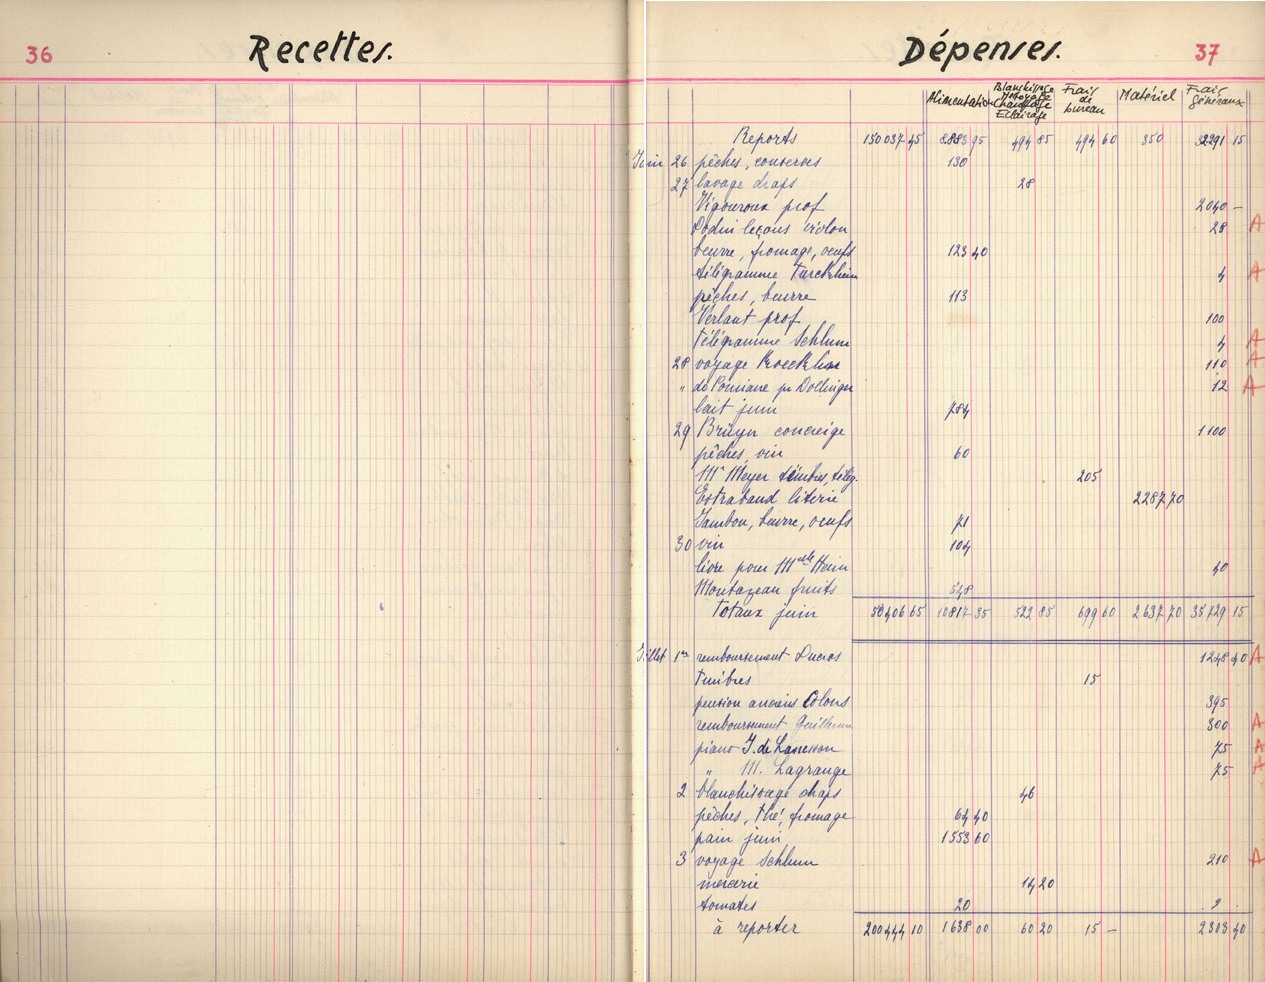 36
Recettes.
Dépenses.
37
Alimentation Blanchissage Nettoyage Chauffage Eclairage Frais de bureau Matériel Frais généraux
Reports 150 037 45 8883 95 494 85 494 60 350 2291 15
Juin 26 pêches, conserves 130
27 lavage draps 28
Vigouroux prof 2040 —
Dodin leçons violon 28 A
beurre, fromage, oeufs 123 40
télégramme Turckheim 4 A
pêches, beurre 113
Verlaut prof 100
Télégramme Schlum 4 A
28 voyage Koechlin 110 A
" de Pomiane pr Dollinger 12 A
lait juin 784
29 Brüyn concierge 1100
pêches, vin 60
Mr Meyer timbres, télég. 205
Estraband literie 2287 70
Jambon, beurre, oeufs 71
30 vin 104
livre pour Melle Hein 40
Montazeau fruits 548
Totaux juin 50 406 65 10817 35 522 85 699 60 2637 70 35729 15
Juillet 1er remboursement Ducros 1248 40 A
Timbres 15
pension anciens Colons 395
remboursement Guillerm 300 A
piano J. de Lanesson 75 A
" M. Lagrange 75 A
2 blanchissage draps 46
pêches, thé, fromage 64 40
pain juin 1553 60
3 voyage Schlum 210 A
mercerie 14 20
tomates 20
à reporter 200 444 10 1638 00 60 20 15 — 2303 40